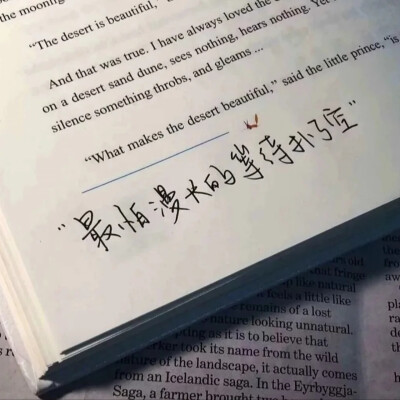 the moonlig
"The desert is beautiful,"
And that was true. I have always loved the
on a desert sand dune, sees nothing, hears nothing. Yet
silence something throbs, and gleams ...
"What makes the desert beautiful," said the little prince, "is
"最怕漫长的等待扑了空"
old
that fringe
like natural
feels a little like
remains of a lost
nature looking unnatural.
as it is to believe that
rker took its name from the wild
ture of the landscape, it actually comes
from an Icelandic saga. In the Eyrbyggja-
Saga, a farmer brought two